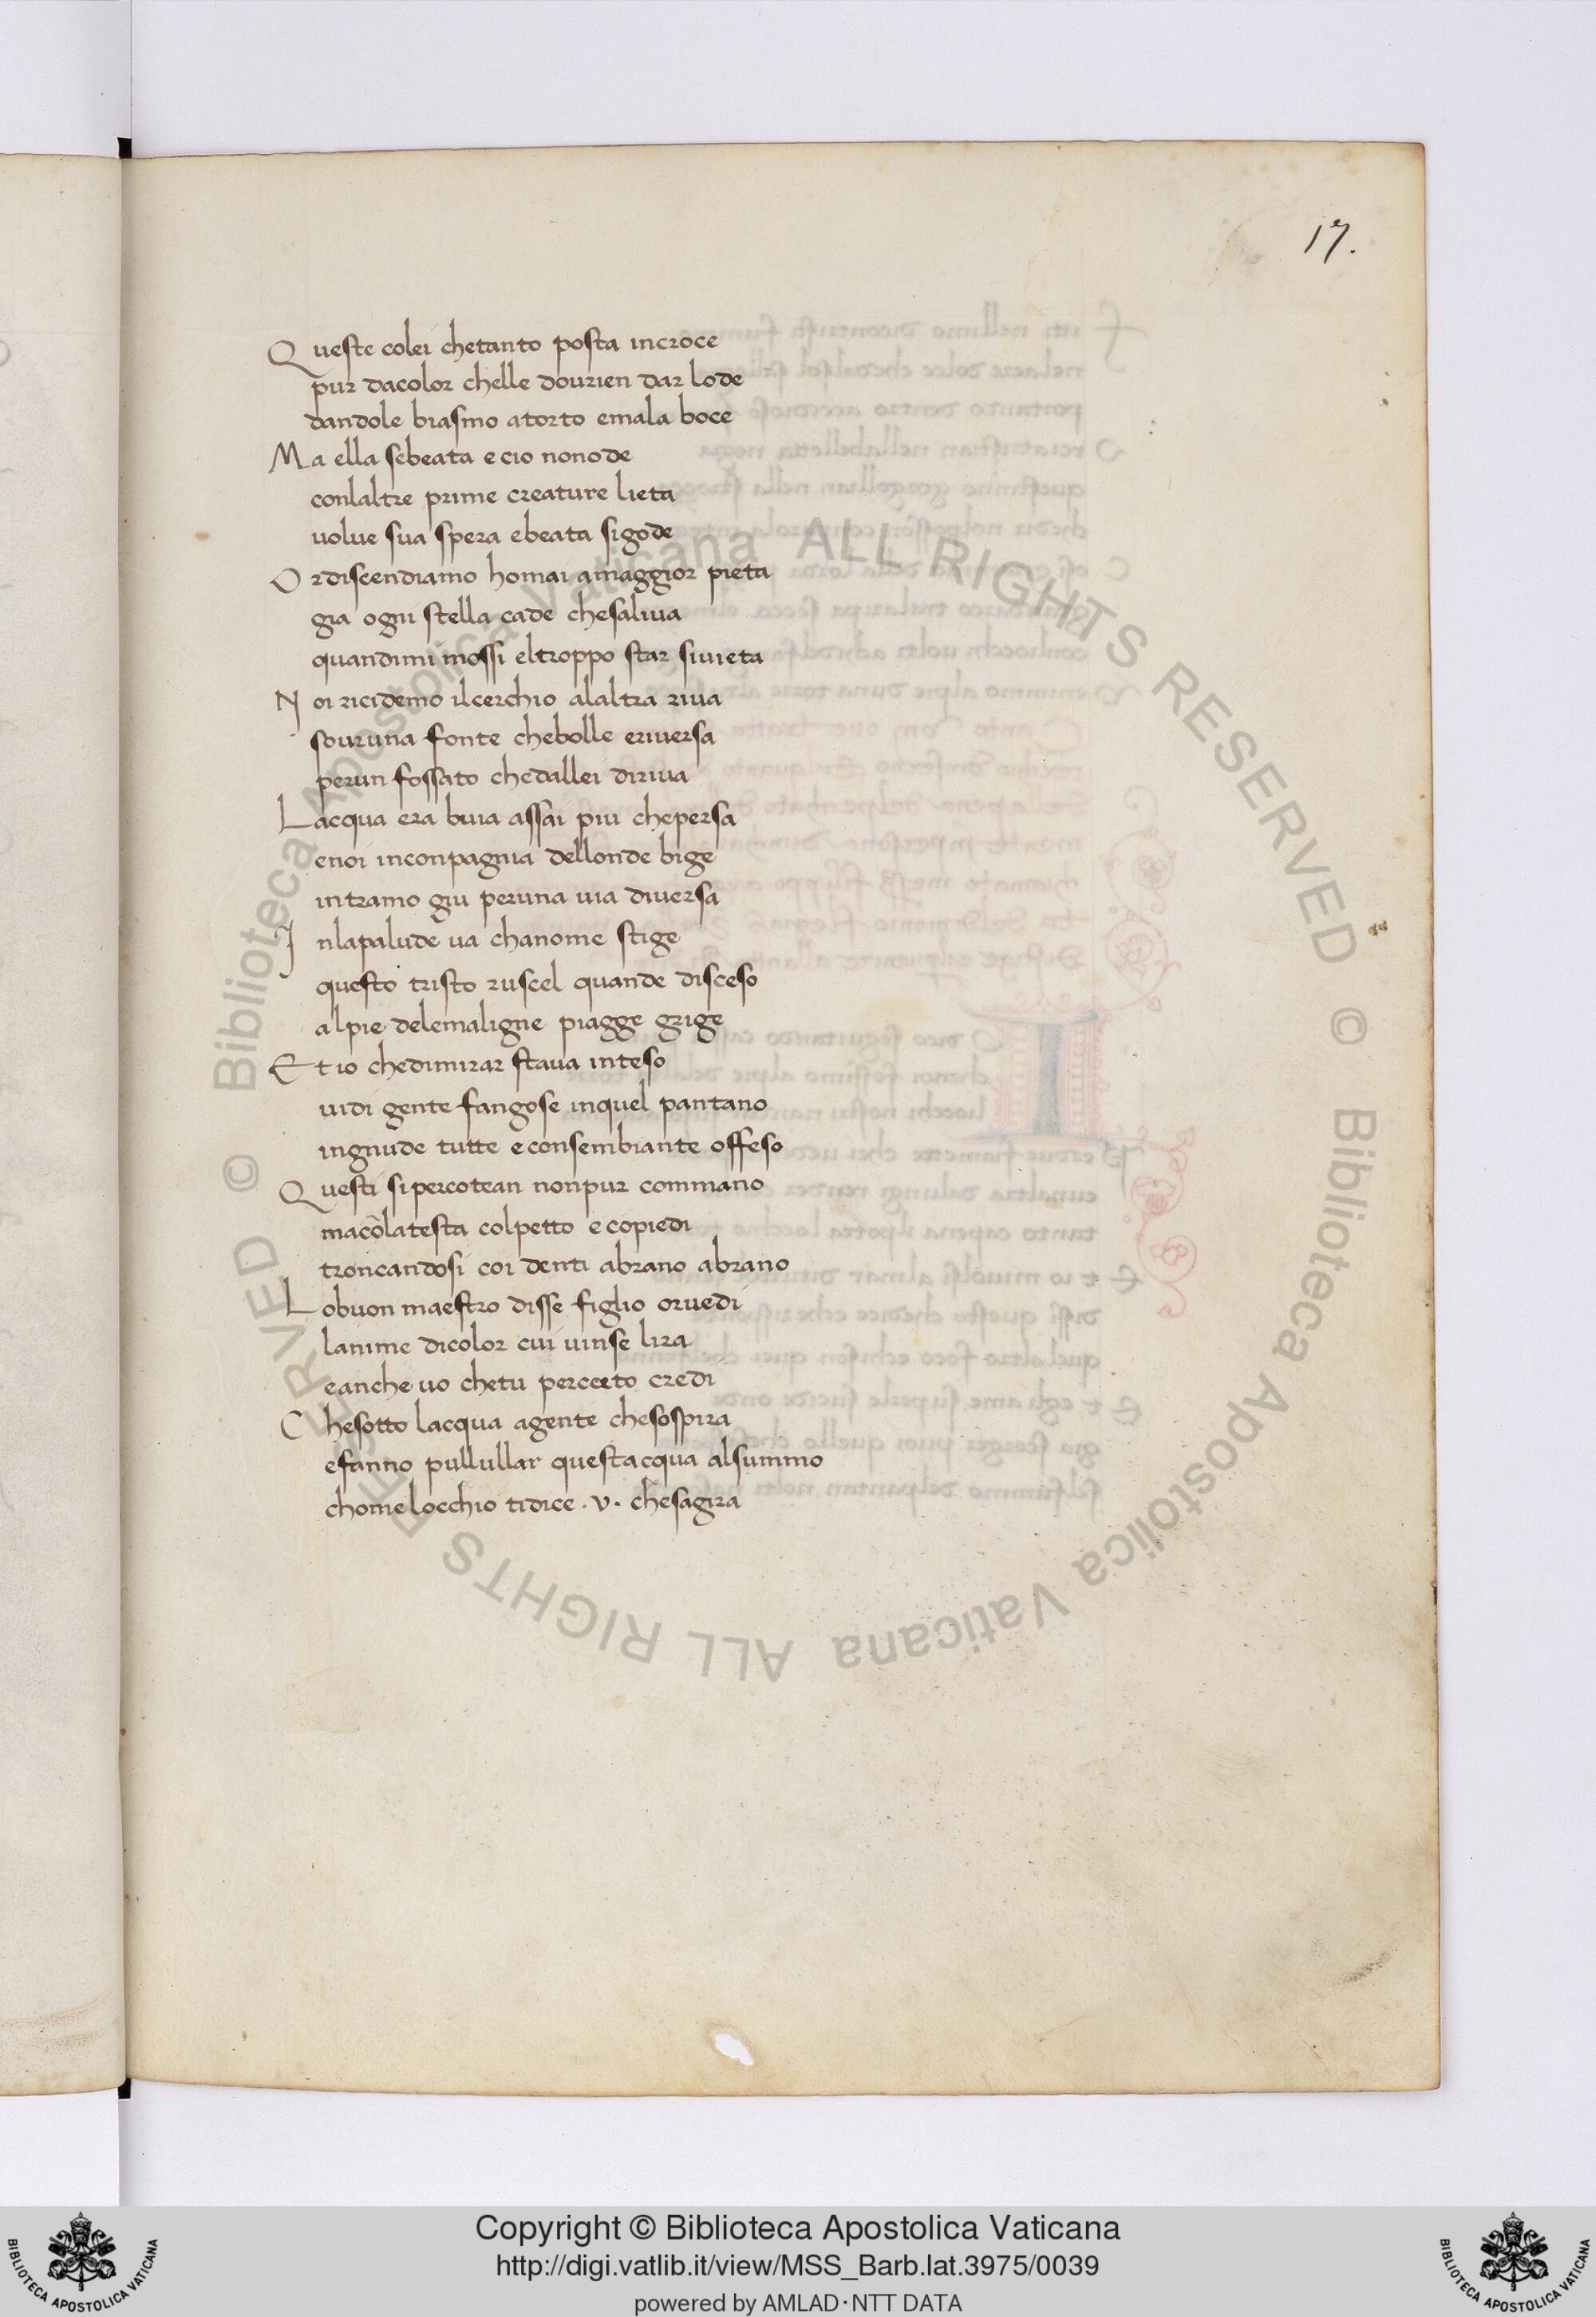 17.
Queste colei chetanto posta incroce
pur dacolor chelle dourien dar lode
dandole biasmo atorto emala boce
Ma ella sebeata ecio nonode
conlaltre prime creature lieta
uolue sua spera ebeata sigode
Ordiscendiamo homai amaggior pieta
gia ogni stella cade chesaliua
quandimi mossi eltroppo star siuieta
Noi ricidemo ilcerchio alaltra riua
souruna fonte chebolle eriuersa
perun fossato chedallei diriua
Lacqua era buia assai piu chepersa
enoi inconpagnia dellonde bige
intramo giu peruna uia diuersa
Inlapalude ua chanome stige
questo tristo ruscel quande disceso
alpie delemaligne piagge grige
Et io chedimirar staua inteso
uidi gente fangose inquel pantano
ingnude tutte econsembiante offeso
Questi sipercotean nonpur commano
macõlatesta colpetto ecopiedi
troncandosi coi denti abrano abrano
Lobuon maestro disse figlio oruedi
lanime dicolor cui uinse lira
eanche uo chetu percerto credi
Chesotto lacqua agente chesospira
efanno pullullar questacqua alsummo
chomelocchio tidice .v. chesagira
Copyright © Biblioteca Apostolica Vaticana
http://digi.vatlib.it/view/MSS_Barb.lat.3975/0039
powered by AMLAD·NTT DATA
BIBLIOTECA APOSTOLICA VATICANA
BIBLIOTECA APOSTOLICA VATICANA
© Biblioteca Apostolica Vaticana ALL RIGHTS RESERVED © Biblioteca Apostolica Vaticana ALL RIGHTS RESERVED